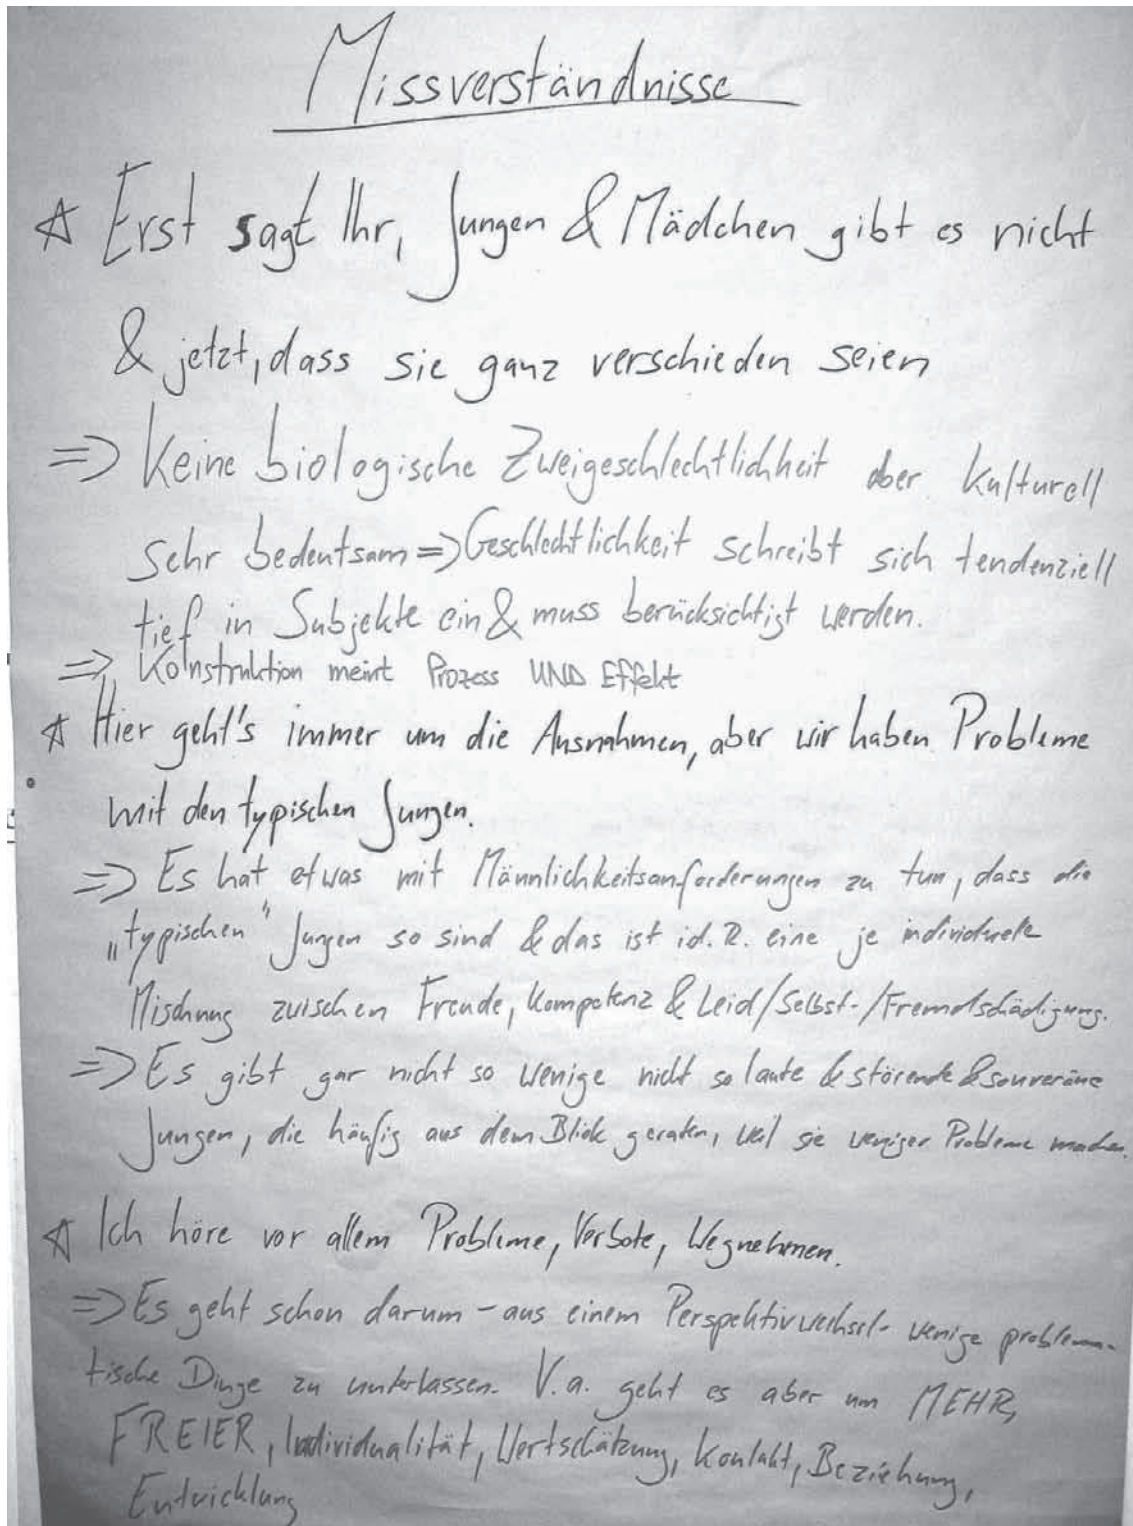 Missverständnisse
☆ Erst sagt Ihr, Jungen & Mädchen gibt es nicht
& jetzt, dass sie ganz verschieden seien
=> Keine biologische Zweigeschlechtlichkeit aber kulturell
sehr bedeutsam => Geschlechtlichkeit schreibt sich tendenziell
tief in Subjekte ein & muss berücksichtigt werden.
=> Konstruktion meint Prozess UND Effekt
☆ Hier geht's immer um die Ausnahmen, aber wir haben Probleme
mit den typischen Jungen.
=> Es hat etwas mit Männlichkeitsanforderungen zu tun, dass die
„typischen" Jungen so sind & das ist i.d.R. eine je individuelle
Mischung zwischen Freude, Kompetenz & Leid/Selbst-/Fremdschädigung.
=> Es gibt gar nicht so wenige nicht so laute & störende & souveräne
Jungen, die häufig aus dem Blick geraten, weil sie weniger Probleme machen.
☆ Ich höre vor allem Probleme, Verbote, Wegnehmen.
=> Es geht schon darum - aus einem Perspektivwechsel - wenige problema-
tische Dinge zu unterlassen. V.a. geht es aber um MEHR,
FREIER, Individualität, Wertschätzung, Kontakt, Beziehung,
Entwicklung